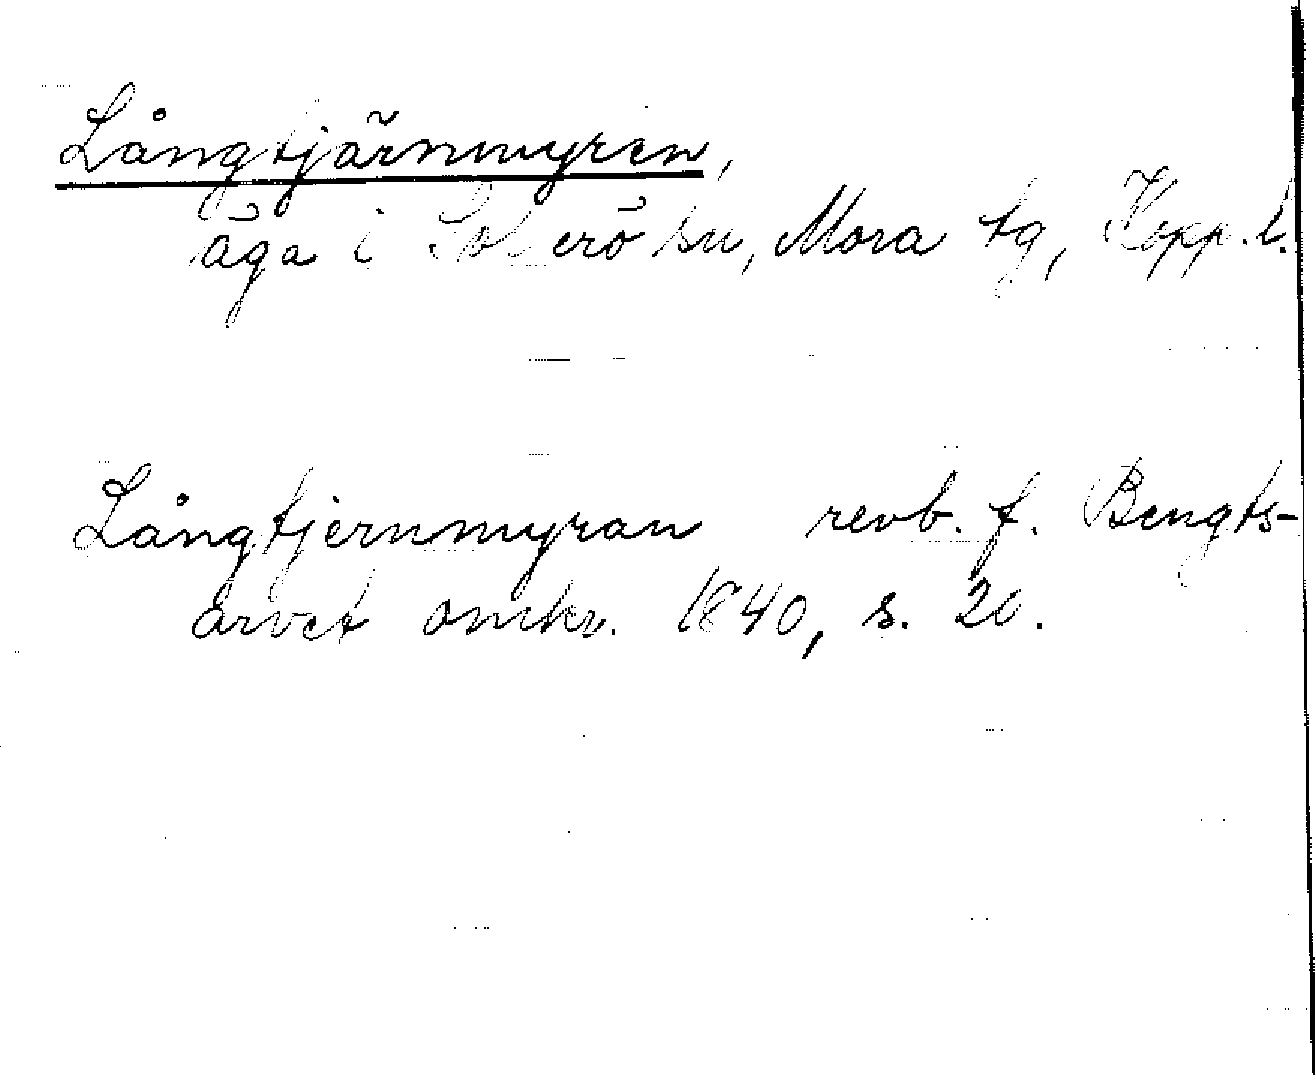 Långtjärnmyren,
äga i Sollerö sn, Mora tg, Kopp. l.
Långtjernmyran revb. f. Bengts-
arvet omkr. 1840, s. 20.